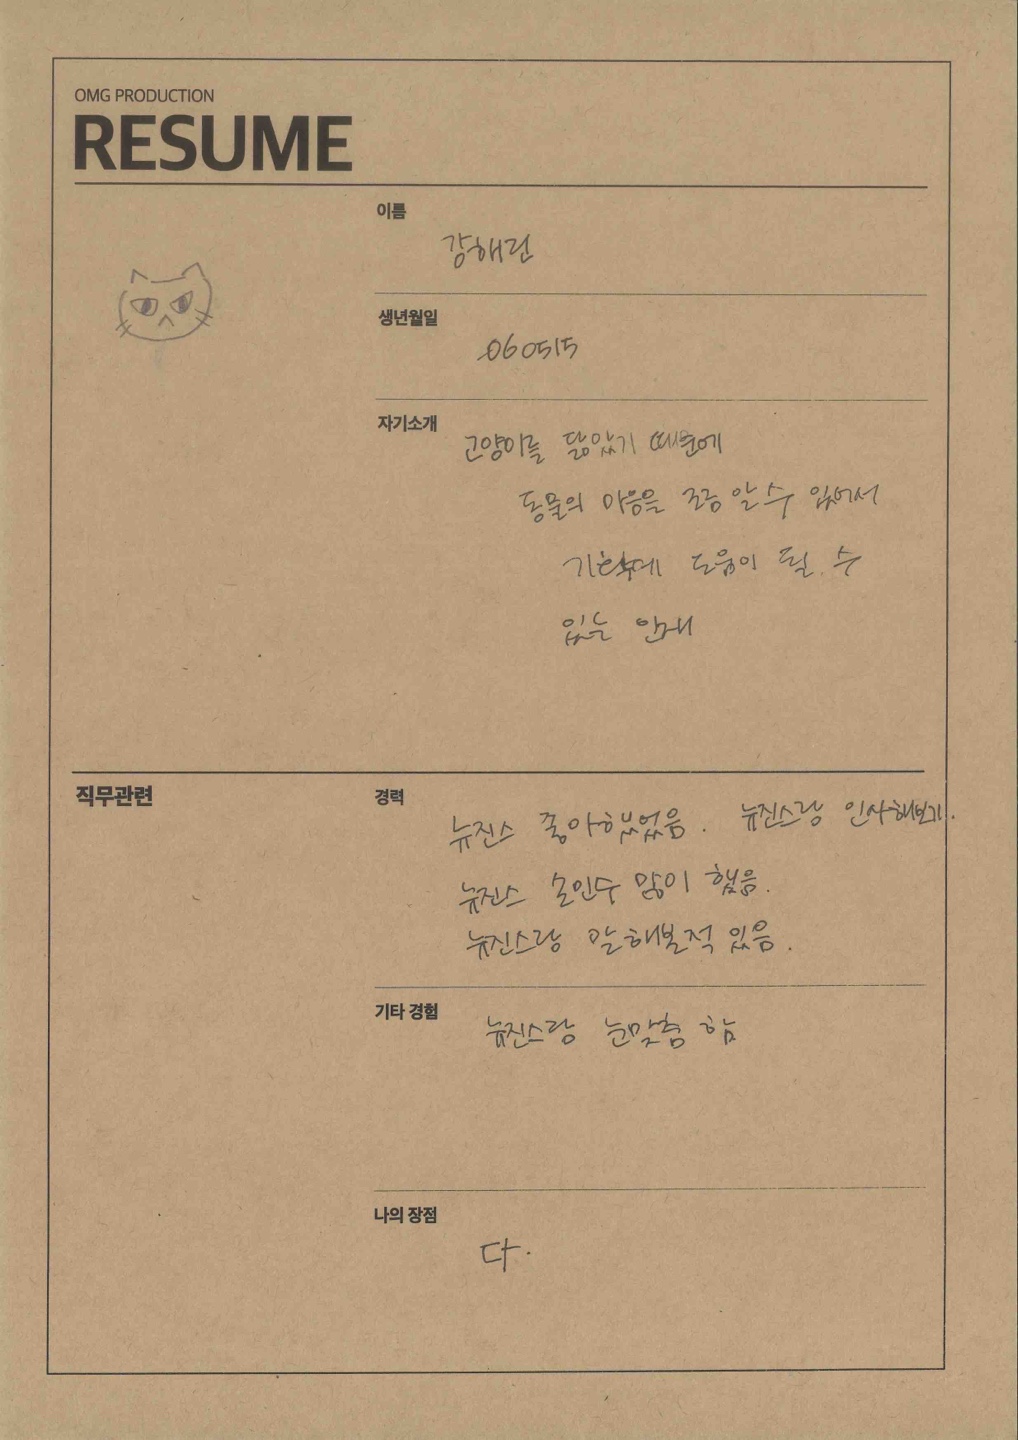 OMG PRODUCTION
RESUME
이름
강해린
생년월일
060515
자기소개
고양이를 닮았기 때문에
동물의 마음을 조금 알 수 있어서
도움이 될 수
있는 인재
직무관련
경력
뉴진스 좋아했었음. 뉴진스랑 인사해보기.
뉴진스 손인수 많이 했음.
뉴진스랑 말해본적 있음.
기타 경험
뉴진스랑 눈맞춤 함
나의 장점
다.